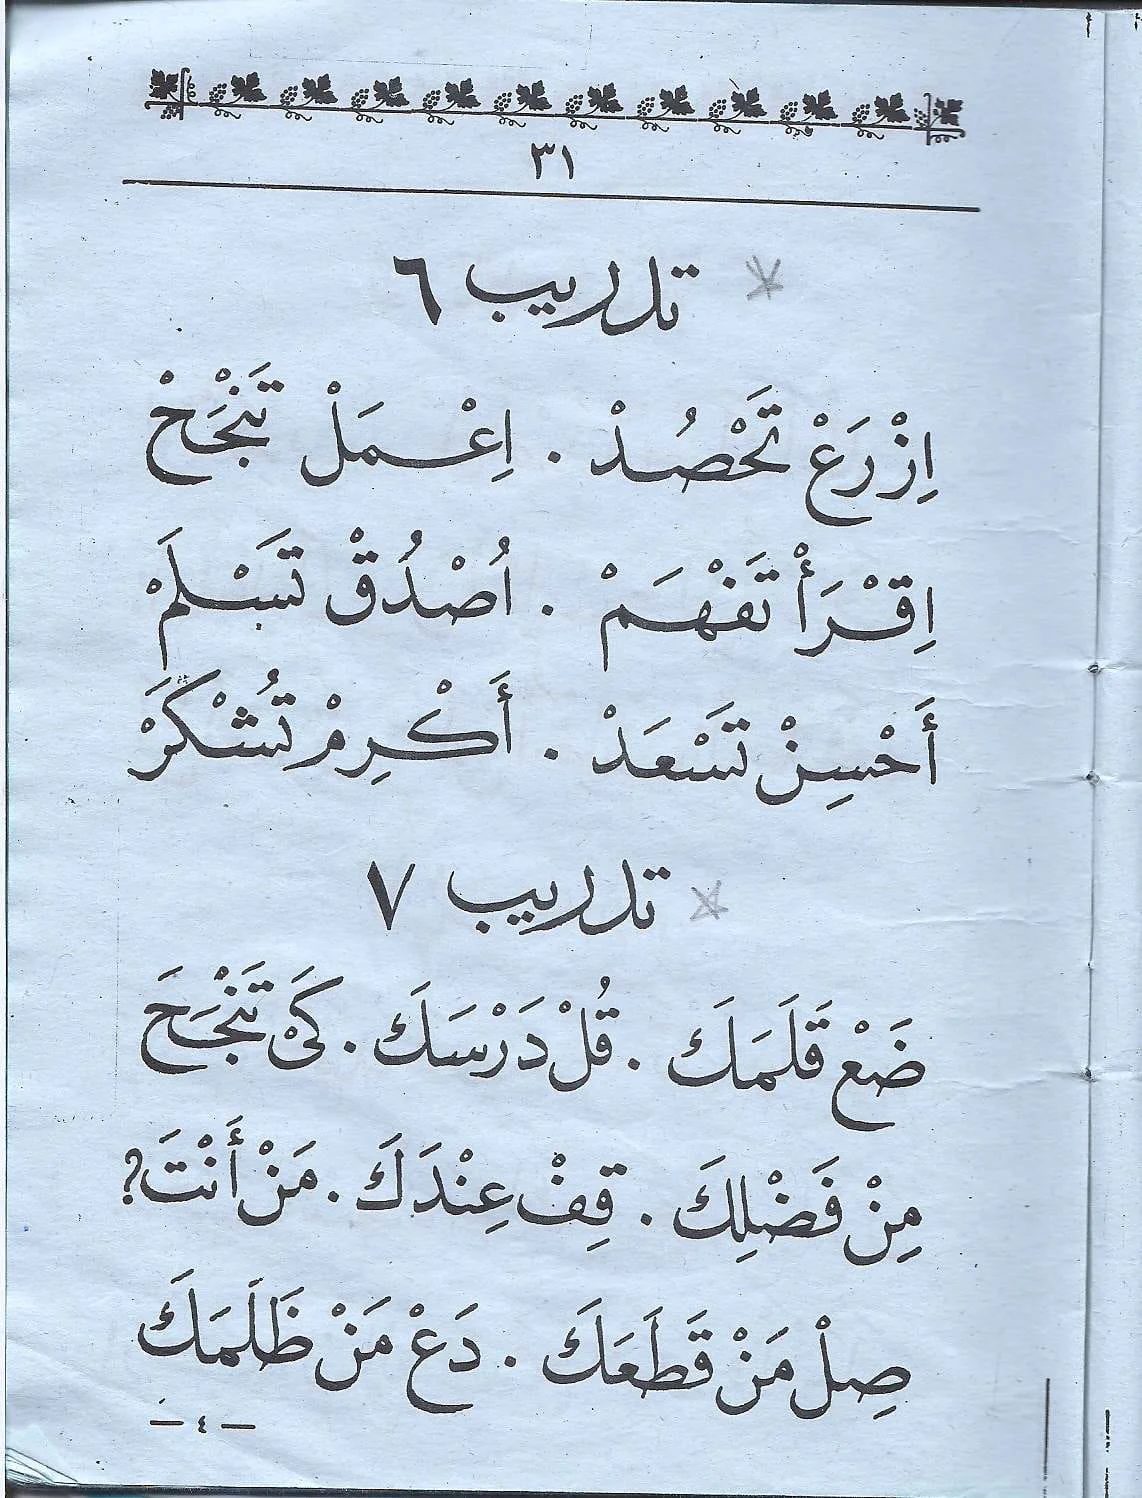 ٣١
تدريب ٦
اِزْرَعْ تَحْصُدْ . اِعْمَلْ تَنْجَحْ
اِقْرَأْ تَفْهَمْ . اُصْدُقْ تَسْلَمْ
أَحْسِنْ تَسْعَدْ . أَكْرِمْ تُشْكَرْ
تدريب ٧
ضَعْ قَلَمَكَ . قُلْ دَرْسَكَ . كَىْ تَنْجَحَ
مِنْ فَضْلِكَ . قِفْ عِنْدَكَ . مَنْ أَنْتَ ?
صِلْ مَنْ قَطَعَكَ . دَعْ مَنْ ظَلَمَكَ
— ٤ —